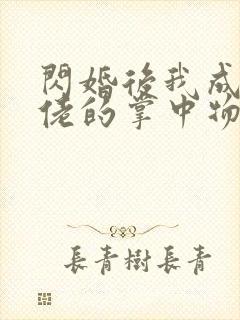 閃婚後我成
佬的掌中物
長青樹長青